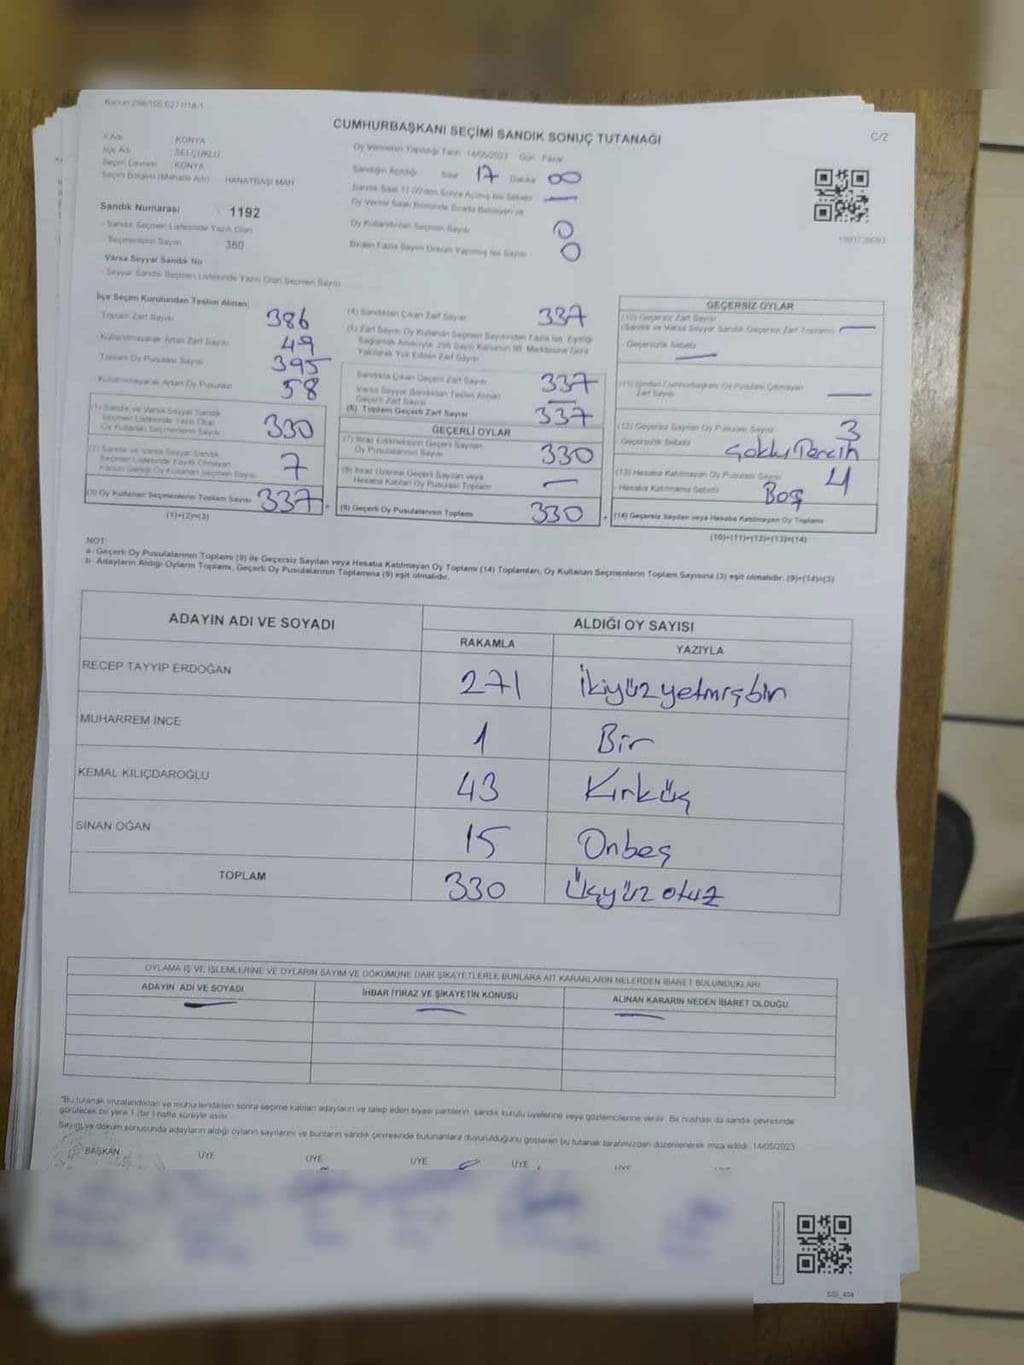 Kanun:298/105 6271/18-1
CUMHURBAŞKANI SEÇİMİ SANDIK SONUÇ TUTANAĞI
C/2
İl Adı KONYA
İlçe Adı SELÇUKLU
Seçim Çevresi KONYA
Seçim Bölgesi (Mahalle Adı) HANAYBAŞI MAH
Sandık Numarası : 1192
Sandık Seçmen Listesinde Yazılı Olan
Seçmenlerin Sayısı 380
Varsa Seyyar Sandık No
Seyyar Sandık Seçmen Listesinde Yazılı Olan Seçmen Sayısı
Oy Vermenin Yapıldığı Tarih 14/05/2023 Gün Pazar
Sandığın Açıldığı Saat 17 Dakika 00
Sandık Saat 17.00'den Sonra Açılmış İse Sebebi —
Oy Verme Saati Bitiminde Sırada Bekleyen ve
Oy Kullandırılan Seçmen Sayısı 0
Birden Fazla Sayım Döküm Yapılmış İse Sayısı 0
İlçe Seçim Kurulundan Teslim Alınan:
Toplam Zarf Sayısı 386
Kullanılmayarak Artan Zarf Sayısı 49
Toplam Oy Pusulası Sayısı 395
Kullanılmayarak Artan Oy Pusulaları 58
(1) Sandık ve Varsa Seyyar Sandık
Seçmen Listesinde Yazılı Olup
Oy Kullanan Seçmenlerin Sayısı 330
(2) Sandık ve Varsa Seyyar Sandık
Seçmen Listesinde Kayıtlı Olmayan
Kanun Gereği Oy Kullanan Seçmen Sayısı 7
(3) Oy Kullanan Seçmenlerin Toplam Sayısı 337
(1)+(2)=(3)
(4) Sandıktan Çıkan Zarf Sayısı 337
(5) Zarf Sayısı Oy Kullanan Seçmen Sayısından Fazla İse, Eşitliği
Sağlamak Amacıyla, 298 Sayılı Kanunun 98. Maddesine Göre
Yakılarak Yok Edilen Zarf Sayısı
Sandıkta Çıkan Geçerli Zarf Sayısı 337
Varsa Seyyar Sandıktan Teslim Alınan
Geçerli Zarf Sayısı —
(6) Toplam Geçerli Zarf Sayısı 337
GEÇERLİ OYLAR
(7) İtiraz Edilmeksizin Geçerli Sayılan
Oy Pusulası Toplamı 330
(8) İtiraz Üzerine Geçerli Sayılan veya
Hesaba Katılan Oy Pusulası Toplamı —
(9) Geçerli Oy Pusulalarının Toplamı 330
GEÇERSİZ OYLAR
(10) Geçersiz Zarf Sayısı
(Sandık ve Varsa Seyyar Sandık Geçersiz Zarf Toplamı) —
Geçersizlik Sebebi —
(11) İçinden Cumhurbaşkanı Oy Pusulası Çıkmayan
Zarf Sayısı —
(12) Geçersiz Sayılan Oy Pusulası Sayısı 3
Geçersizlik Sebebi Çoklu Tercih
(13) Hesaba Katılmayan Oy Pusulası Sayısı 4
Hesaba Katılmama Sebebi Boş
(14) Geçersiz Sayılan veya Hesaba Katılmayan Oy Toplamı
(10)+(11)+(12)+(13)=(14)
NOT
a- Geçerli Oy Pusulalarının Toplamı (9) ile Geçersiz Sayılan veya Hesaba Katılmayan Oy Toplamı (14) Toplamları, Oy Kullanan Seçmenlerin Toplam Sayısına (3) eşit olmalıdır. (9)+(14)=(3)
b- Adayların Aldığı Oyların Toplamı, Geçerli Oy Pusulalarının Toplamına (9) eşit olmalıdır.
ADAYIN ADI VE SOYADI ALDIĞI OY SAYISI
RAKAMLA YAZIYLA
RECEP TAYYIP ERDOĞAN 271 İkiyüzyetmişbin
MUHARREM İNCE 1 Bir
KEMAL KILIÇDAROĞLU 43 Kırküç
SİNAN OĞAN 15 Onbeş
TOPLAM 330 Üçyüz otuz
OYLAMA İŞ VE İŞLEMLERİNE VE OYLARIN SAYIM VE DÖKÜMÜNE DAİR ŞİKAYETLERLE BUNLARA AİT KARARLARIN NELERDEN İBARET BULUNDUKLARI
ADAYIN ADI VE SOYADI İHBAR İTİRAZ VE ŞİKAYETİN KONUSU ALINAN KARARIN NEDEN İBARET OLDUĞU
— — —
"Bu tutanak imzalandıktan ve mühürlendikten sonra seçime katılan adayların ve talep eden siyasi partilerin sandık kurulu üyelerine veya gözlemcilerine verilir. Bir nüshası da sandık çevresinde
görülecek bir yere 1 (bir ) hafta süreyle asılır.
Sayım ve döküm sonucunda adayların aldığı oyların sayılarını ve bunların sandık çevresinde bulunanlara duyurulduğunu gösteren bu tutanak tarafımızdan düzenlenerek imza edildi. 14/05/2023
BAŞKAN ÜYE ÜYE ÜYE ÜYE ÜYE
SSİ_404